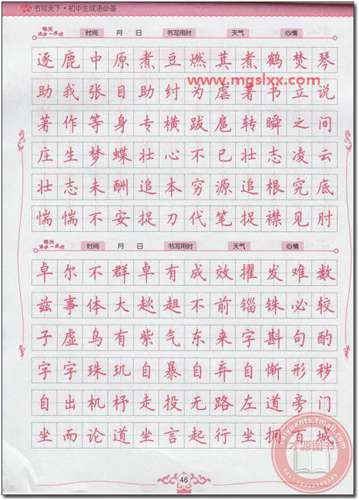 书写天下·初中生成语必备
每天
进步一点点
时间 月 日 书写用时 天气 心情
逐鹿中原煮豆燃萁煮鹤焚琴
www.mgslxx.com
助我张目助纣为虐著书立说
著作等身专横跋扈转瞬之间
庄生梦蝶壮心不已壮志凌云
壮志未酬追本穷源追根究底
惴惴不安捉刀代笔捉襟见肘
每天
进步一点点
时间 月 日 书写用时 天气 心情
卓尔不群卓有成效擢发难数
兹事体大趑趄不前锱铢必较
子虚乌有紫气东来字斟句酌
字字珠玑自暴自弃自惭形秽
自出机杼走投无路左道旁门
坐而论道坐言起行坐拥百城
46